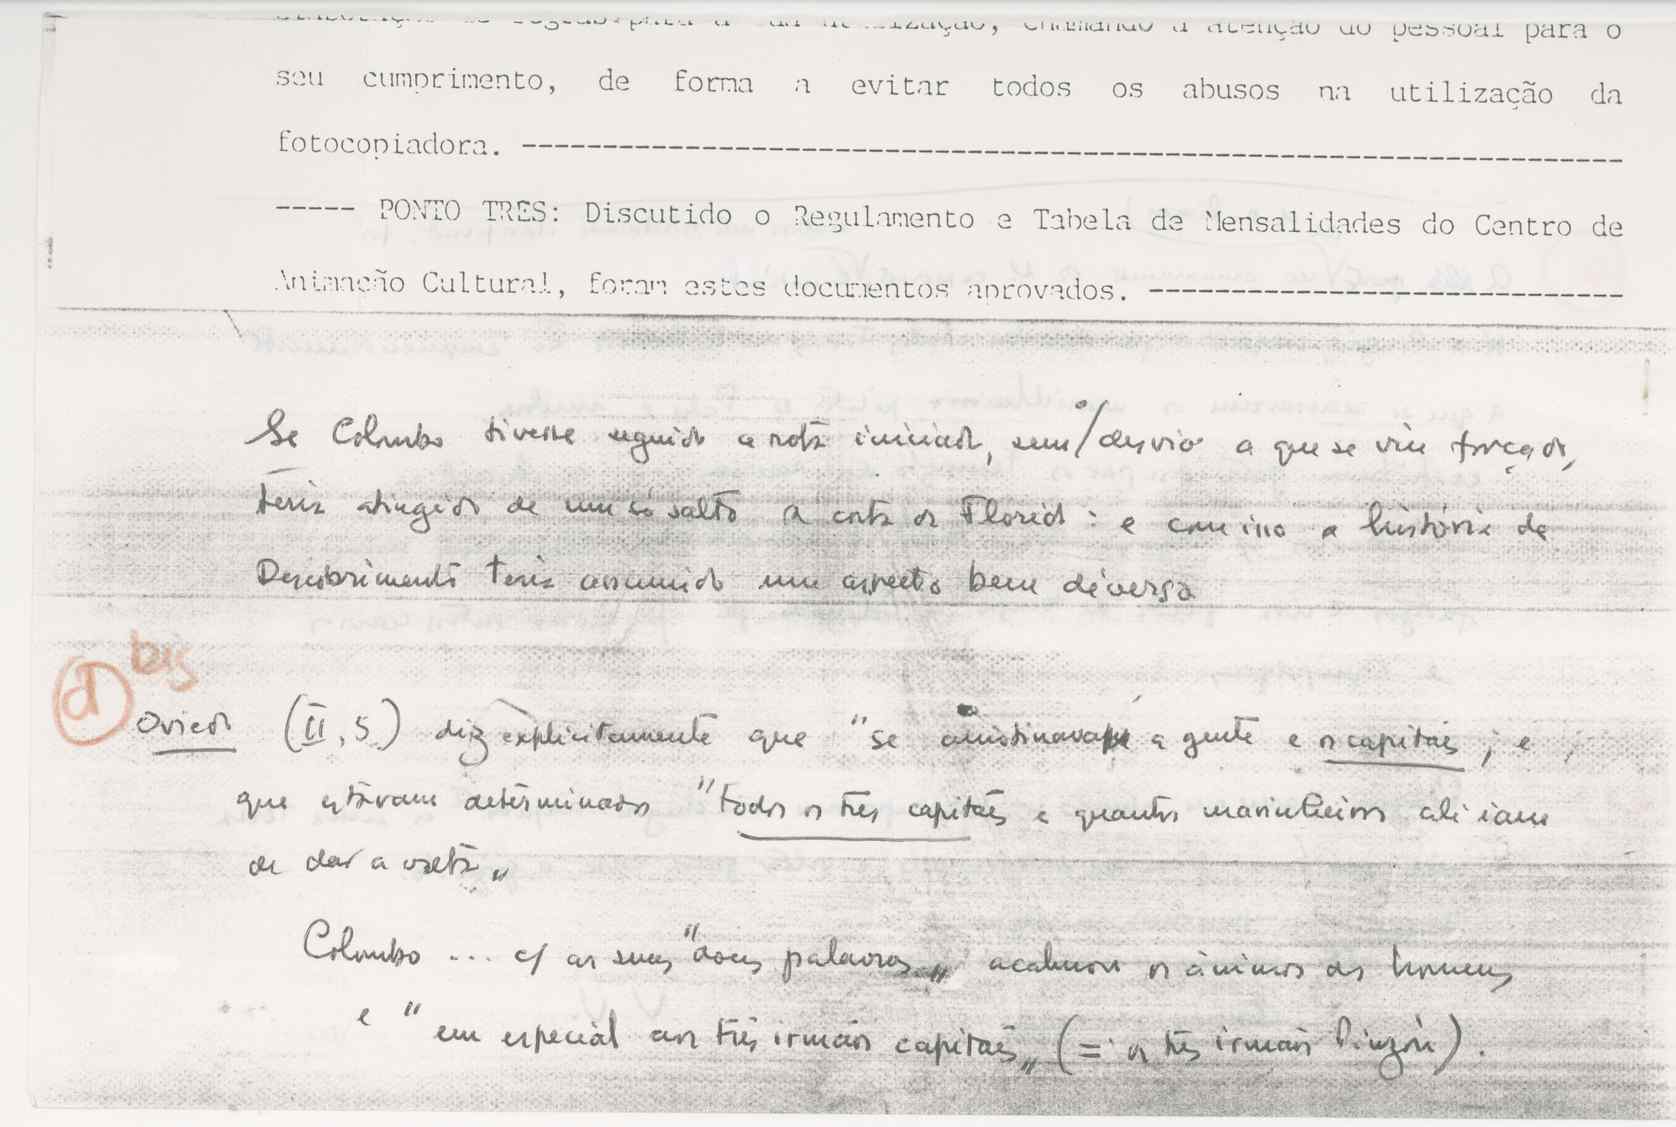 utilização, chamando a atenção do pessoal para o
seu cumprimento, de forma a evitar todos os abusos na utilização da
fotocopiadora. ----------------------------------------------------------------------
----- PONTO TRES: Discutido o Regulamento e Tabela de Mensalidades do Centro de
Animação Cultural, foram estes documentos aprovados. ------------------------------
Se Colombo tivesse seguido a rota inicial, sem o desvio a que se viu forçado,
teria atingido de um só salto a costa da Florida: e com isso a história do
Descobrimento teria assumido um aspecto bem diverso
d bis
Oviedo (II, 5) diz explicitamente que "se amotinava a gente e os capitães; e
que estavam determinados "todos os três capitães e quantos marinheiros ali iam
de dar a volta„
Colombo ... c/ as suas "doces palavras„ acalmou os ânimos dos homens
e "em especial aos três irmãos capitães„ (= os três irmãos Pinzón).